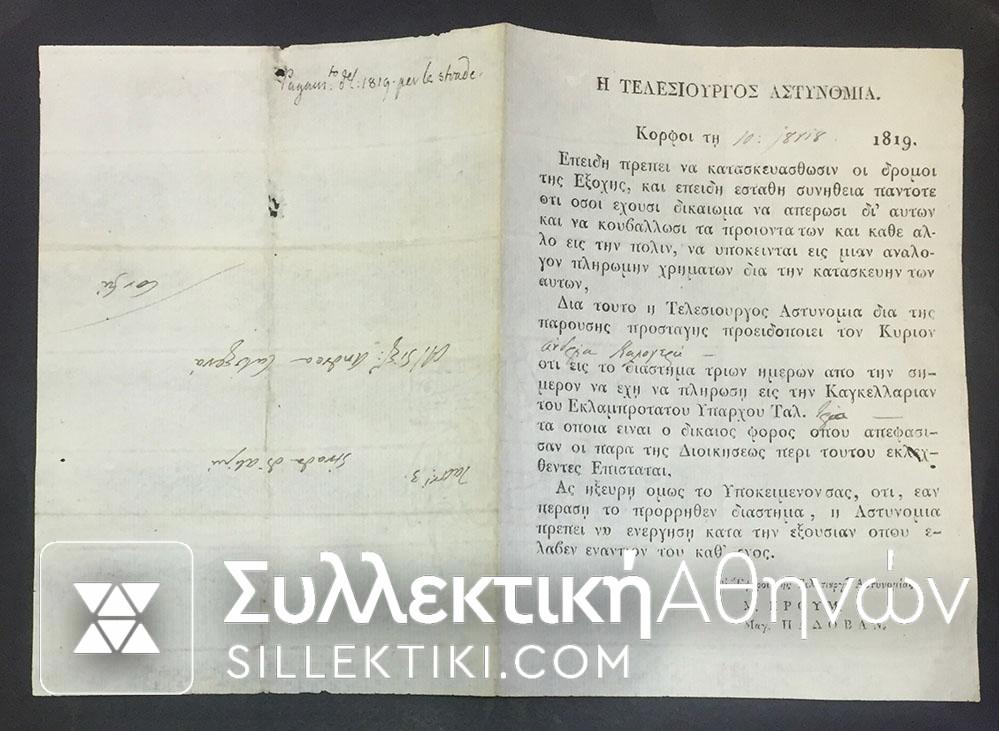 Pagam.to del: 1819. per le strade.
Corfù
Al Sig.r Andrea
Strada di
Tal.ri 3.
Η ΤΕΛΕΣΙΟΥΡΓΟΣ ΑΣΤΥΝΟΜΙΑ.
Κορφοι τη 10: 1819.
Επειδη πρεπει να κατασκευασθωσιν οι δρομοι
της Εξοχης, και επειδη εσταθη συνηθεια παντοτε
οτι οσοι εχουσι δικαιωμα να απερωσι δι' αυτων
και να κουβαλλωσι τα προιοντα των και καθε αλ-
λο εις την πολιν, να υποκεινται εις μιαν αναλο-
γον πληρωμην χρηματων δια την κατασκευην των
αυτων,
Δια τουτο η Τελεσιουργος Αστυνομια δια της
παρουσης προσταγης προειδοποιει τον Κυριον
οτι εις το διαστημα τριων ημερων απο την ση-
μερον να εχη να πληρωση εις την Καγκελλαριαν
του Εκλαμπροτατου Υπαρχου Ταλ.
τα οποια ειναι ο δικαιος φορος οπου απεφασι-
σαν οι παρα της Διοικησεως περι τουτου εκλεχ-
θεντες Επισταται.
Ας ηξευρη ομως το Υποκειμενον σας, οτι, εαν
περαση το προρρηθεν διαστημα, η Αστυνομια
πρεπει να ενεργηση κατα την εξουσιαν οπου ε-
λαβεν εναντιον του καθ' ενος.
Αστυνομιας
Μαγ. ΠΑΔΟΒΑΝ.
Συλλεκτική Αθηνών
SILLEKTIKI.COM